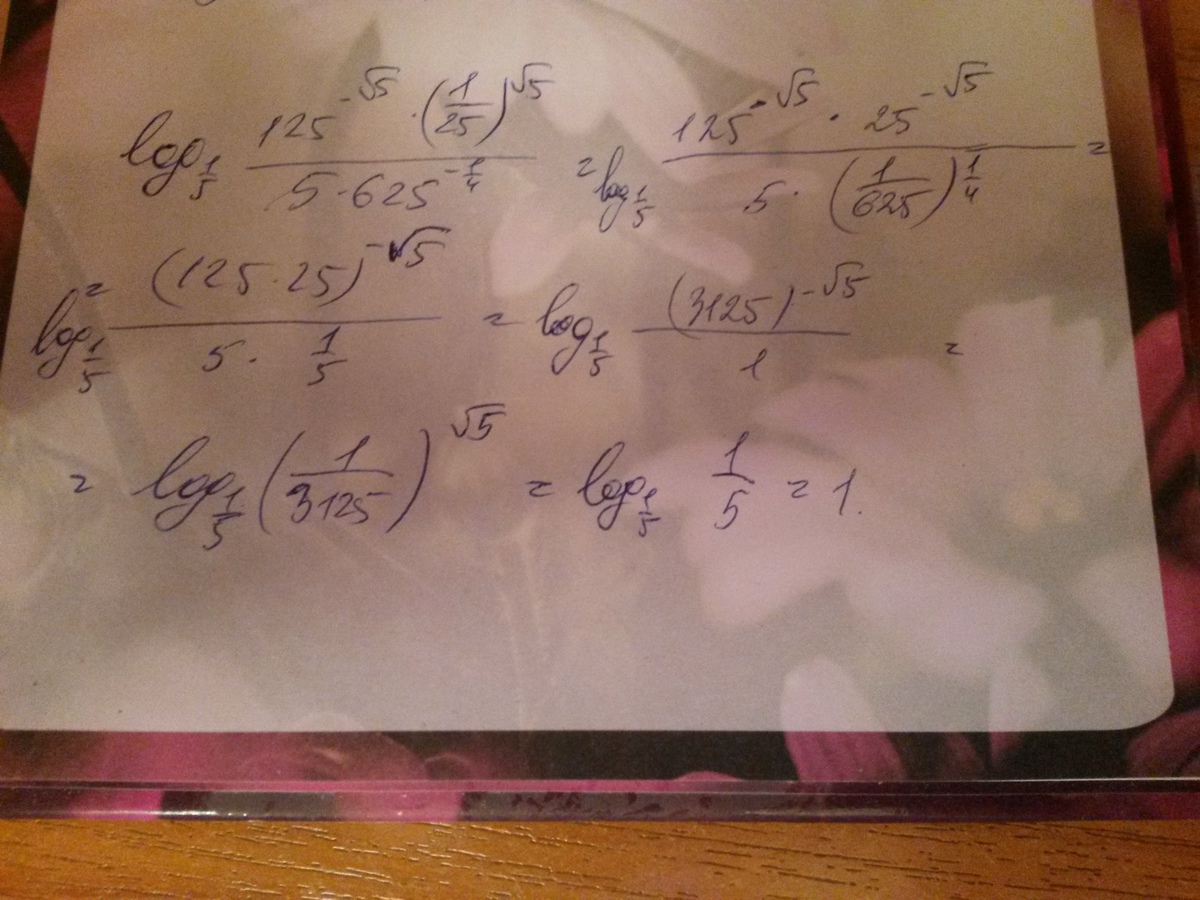 log_{1/5} \frac{125^{-√5} · (1/25)^{√5}}{5 · 625^{-1/4}} = log_{1/5} \frac{125^{-√5} · 25^{-√5}}{5 · (1/625)^{1/4}} =
= log_{1/5} \frac{(125 · 25)^{-√5}}{5 · 1/5} = log_{1/5} \frac{(3125)^{-√5}}{1} =
= log_{1/5} (1/3125)^{√5} = log_{1/5} 1/5 = 1.